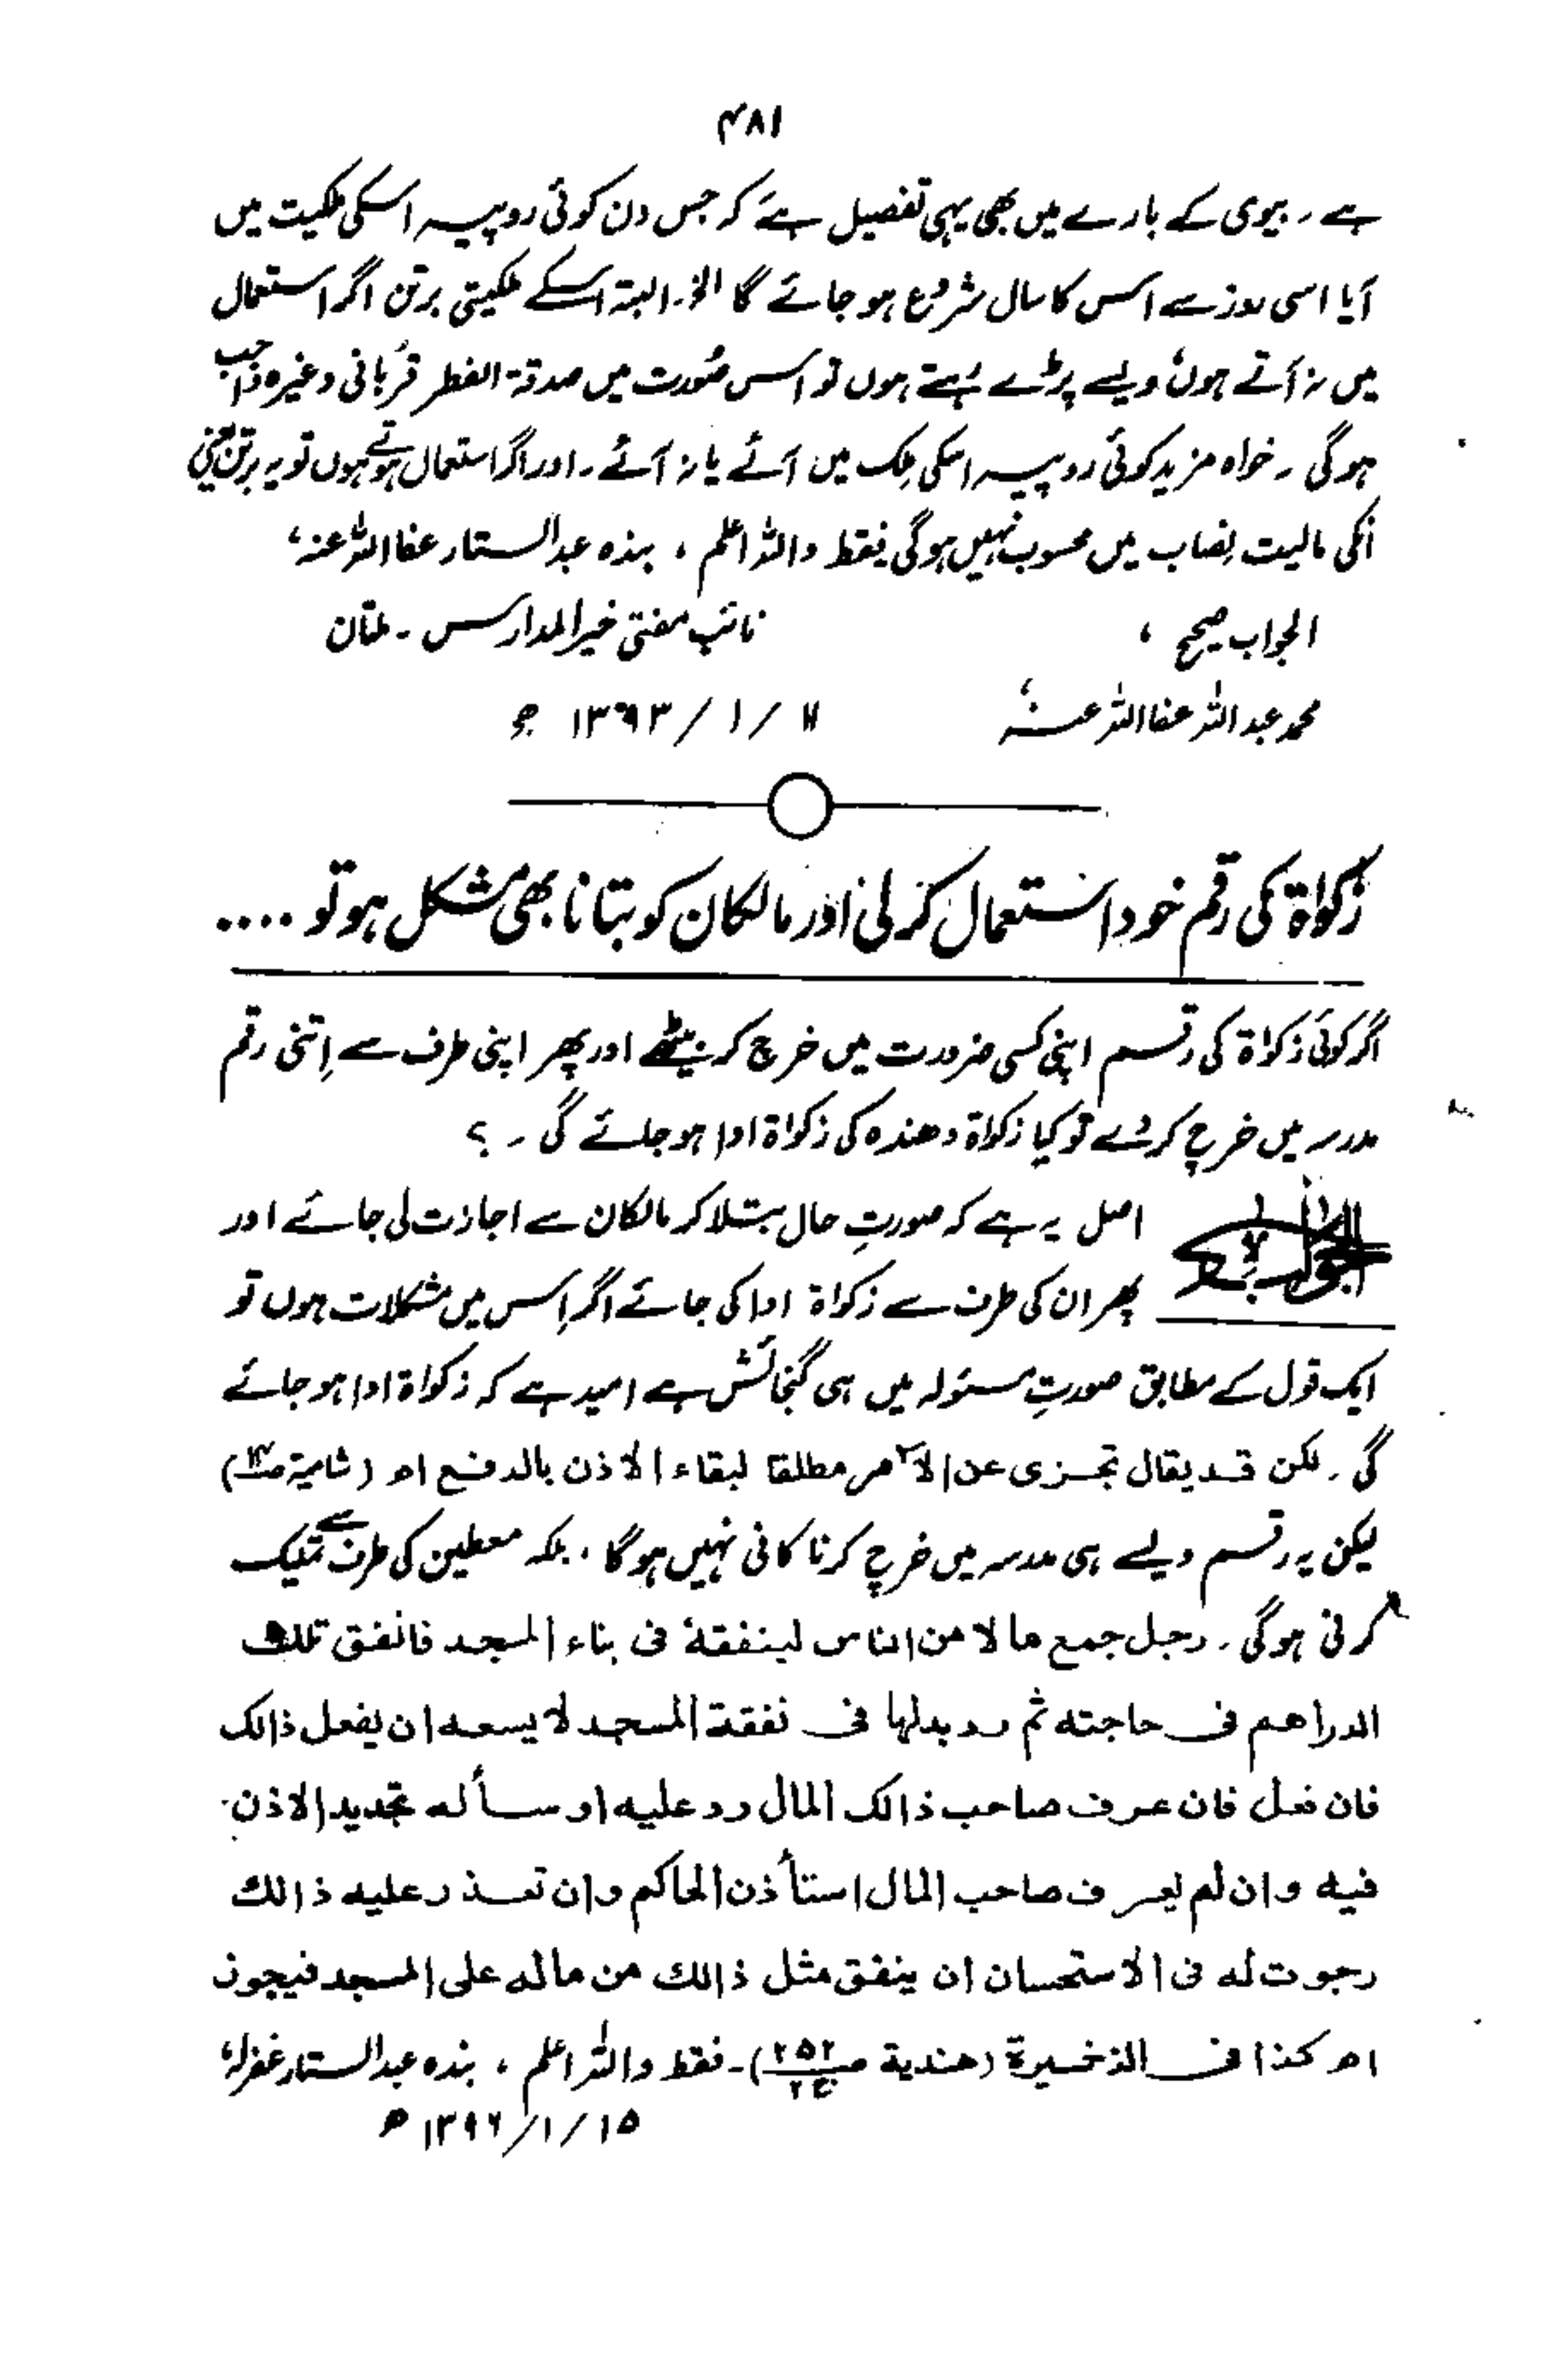 ۴۸۱
ہے ۔ بیوی کے بارے میں بھی یہی تفصیل ہے کہ جس دن کوئی روپیہ اسکی ملکیت میں
آیا اسی روز سے اس کا سال شروع ہو جائے گا الخ ۔ البتہ اسکے ملکیتی برتن اگر استعمال
میں نہ آتے ہوں ویسے پڑے رہتے ہوں تو اس صورت میں صدقۃ الفطر قربانی وغیرہ واجب
ہوگی ۔ خواہ مزید کوئی روپیہ اسکی ملک میں آئے یا نہ آئے ۔ اور اگر استعمال ہوتے ہوں تو یہ برتن یعنی
انکی مالیت نصاب میں محسوب نہیں ہوگی فقط واللہ اعلم ، بندہ عبدالستار عفااللہ عنہ ،
الجواب صحیح ، نائب مفتی خیرالمدارس ۔ ملتان
محمد عبداللہ عفااللہ عنہ ، ۱۱ / ۱ / ۱۳۹۳ ھ
زکواۃ کی رقم خود استعمال کرلی اور مالکان کو بتانا بھی مشکل ہو تو ....
اگر کوئی زکواۃ کی رقم اپنی کسی ضرورت میں خرچ کر بیٹھے اور پھر اپنی طرف سے اتنی رقم
مدرسہ میں خرچ کر دے تو کیا زکواۃ دھندہ کی زکواۃ ادا ہو جائے گی ۔ ؟
الجواب اصل یہ ہے کہ صورتِ حال بتلا کر مالکان سے اجازت لی جائے اور
پھر ان کی طرف سے زکواۃ ادا کی جائے اگر اس میں مشکلات ہوں تو
ایک قول کے مطابق صورتِ مسئولہ میں ہی گنجائش ہے امید ہے کہ زکواۃ ادا ہو جائے
گی ۔ لکن قد یقال تجزی عن الآمر مطلقا لبقاء الاذن بالدفع اھ (شامیۃ
لیکن یہ رقم ویسے ہی مدرسہ میں خرچ کرنا کافی نہیں ہوگا ، بلکہ معطین کی طرف سے تملیک
کرنی ہوگی ۔ رجل جمع مالا من الناس لینفقۃ فی بناء المسجد فانفق تلک
الدراھم فی حاجتہ ثم رد بدلھا فی نفقۃ المسجد لا یسعہ ان یفعل ذالک
فان فعل فان عرف صاحب ذالک المال رد علیہ او سألہ تجدید الاذن
فیہ وان لم یعرف صاحب المال استأذن الحاکم وان تعذر علیہ ذالک
رجوت لہ فی الاستحسان ان ینفق مثل ذالک من مالہ علی المسجد فیجوز
اھ کذا فی الذخیرۃ (ھندیۃ ص۲۵۲ ج۲) ۔ فقط واللہ اعلم ، بندہ عبدالستار غفرلہ ،
۱۵ / ۱ / ۱۳۹۶ ھ